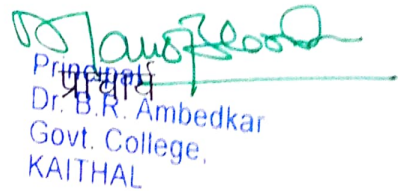 Principal
प्राचार्य
Dr. B.R. Ambedkar
Govt. College,
KAITHAL